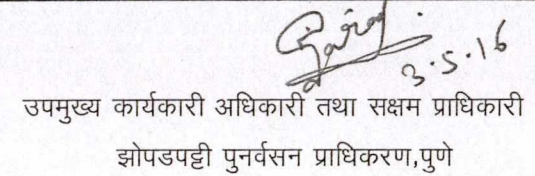 3.5.16
उपमुख्य कार्यकारी अधिकारी तथा सक्षम प्राधिकारी
झोपडपट्टी पुनर्वसन प्राधिकरण,पुणे